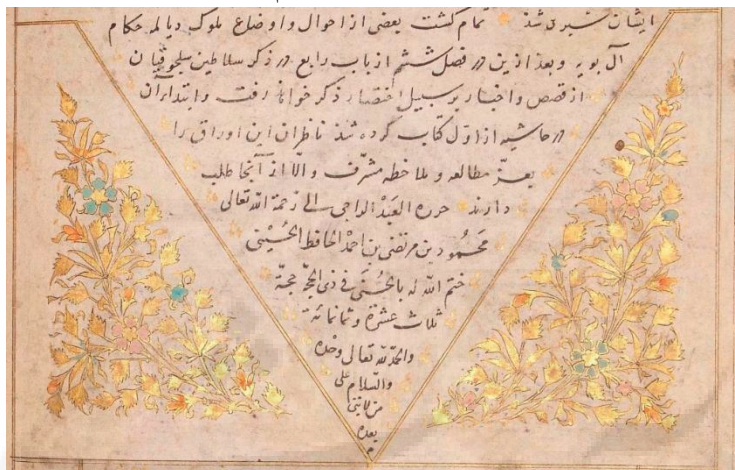 ایشان سپری شد تمام گشت بعضی از احوال و اوضاع ملوک دیالمه حکام
آل بویه و بعد ازین در فصل ششم از باب رابع در ذکر سلاطین سلجوقیان
از قصص و اخبار بر سبیل اختصار ذکر خواهد رفت و ابتدا از آن
در حاشیه از اول کتاب کرده شد ناظران این اوراق را
بعز مطالعه و ملاحظه مشرف و الا از آنجا طلب
دارند حرره العبد الراجی الی رحمة الله تعالی
محمود بن مرتضی بن احمد الحافظ الحسینی
ختم الله له بالحسنی فی ذی الحجة حجة
ثلاث عشرة و ثمانمائة
والحمد لله تعالی وحده
والسلام علی
من لا نبی
بعده
م